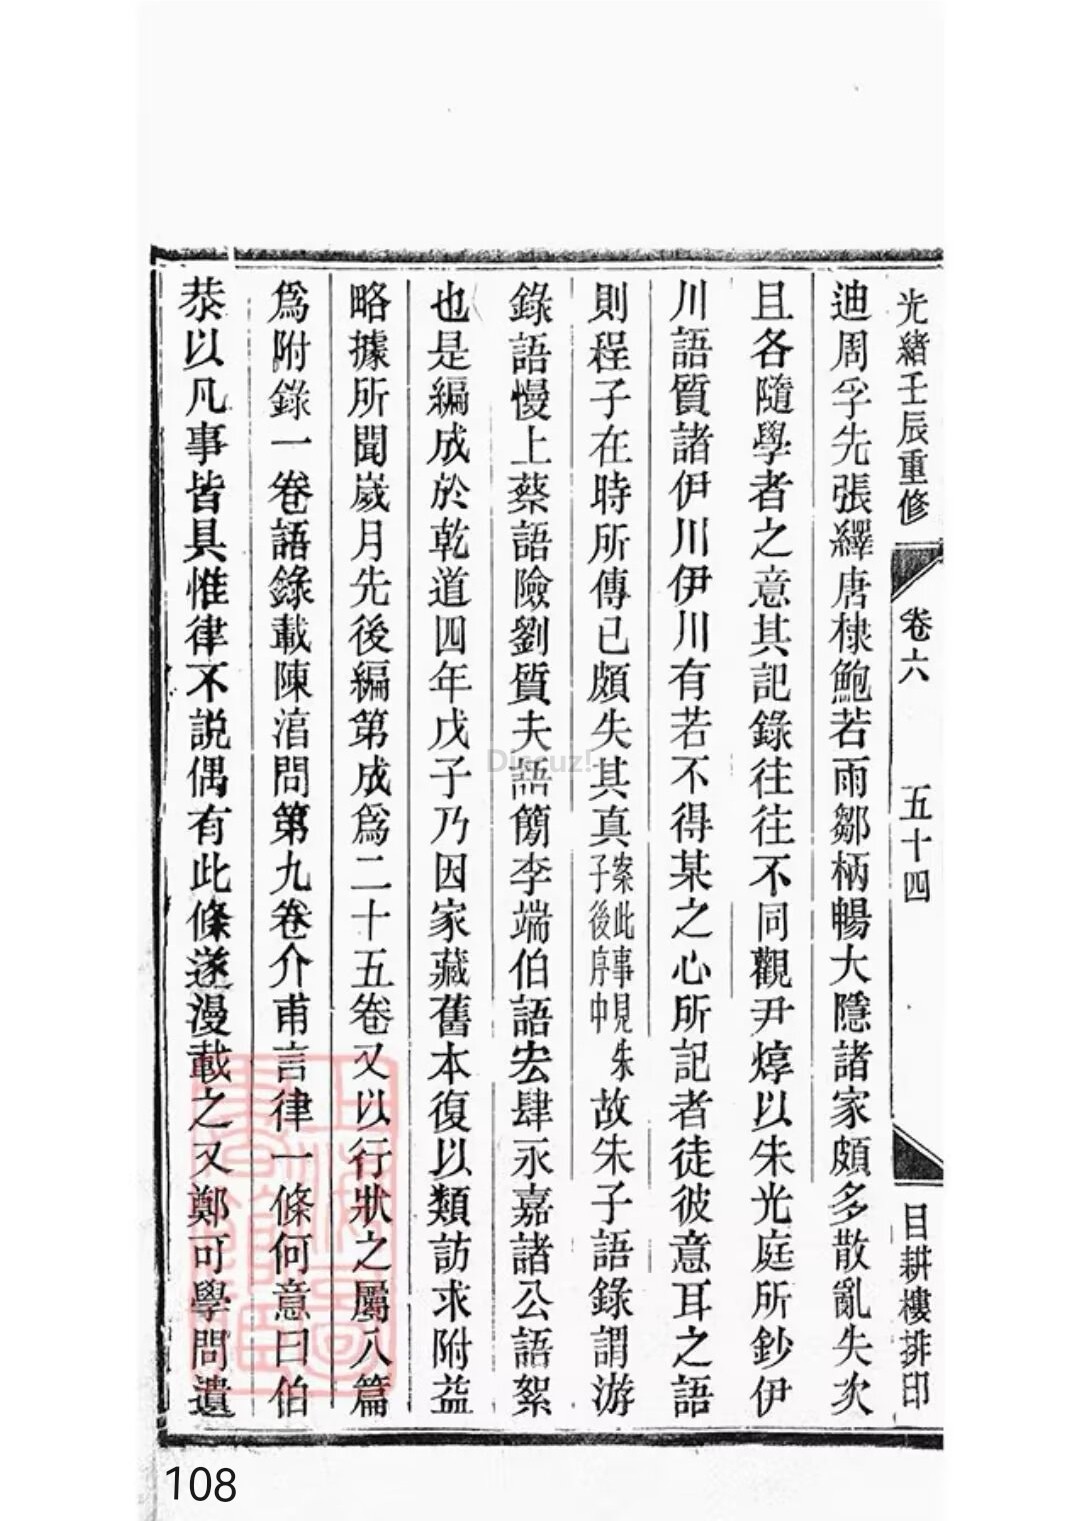 光緒壬辰重修 卷六 五十四 目耕樓排印
迪周孚先張繹唐棣鮑若雨鄒柄暢大隱諸家頗多散亂失次
且各隨學者之意其記錄往往不同觀尹焞以朱光庭所鈔伊
川語質諸伊川伊川有若不得某之心所記者徒彼意耳之語
則程子在時所傳已頗失其真案此事見朱子後序中故朱子語錄謂游
錄語慢上蔡語險劉質夫語簡李端伯語宏肆永嘉諸公語絮
也是編成於乾道四年戊子乃因家藏舊本復以類訪求附益
略據所聞嵗月先後編第成爲二十五卷又以行狀之屬八篇
爲附錄一卷語錄載陳湻問第九卷介甫言律一條何意曰伯
恭以凡事皆具惟律不說偶有此條遂漫載之又鄭可學問遺
Discuz!
108